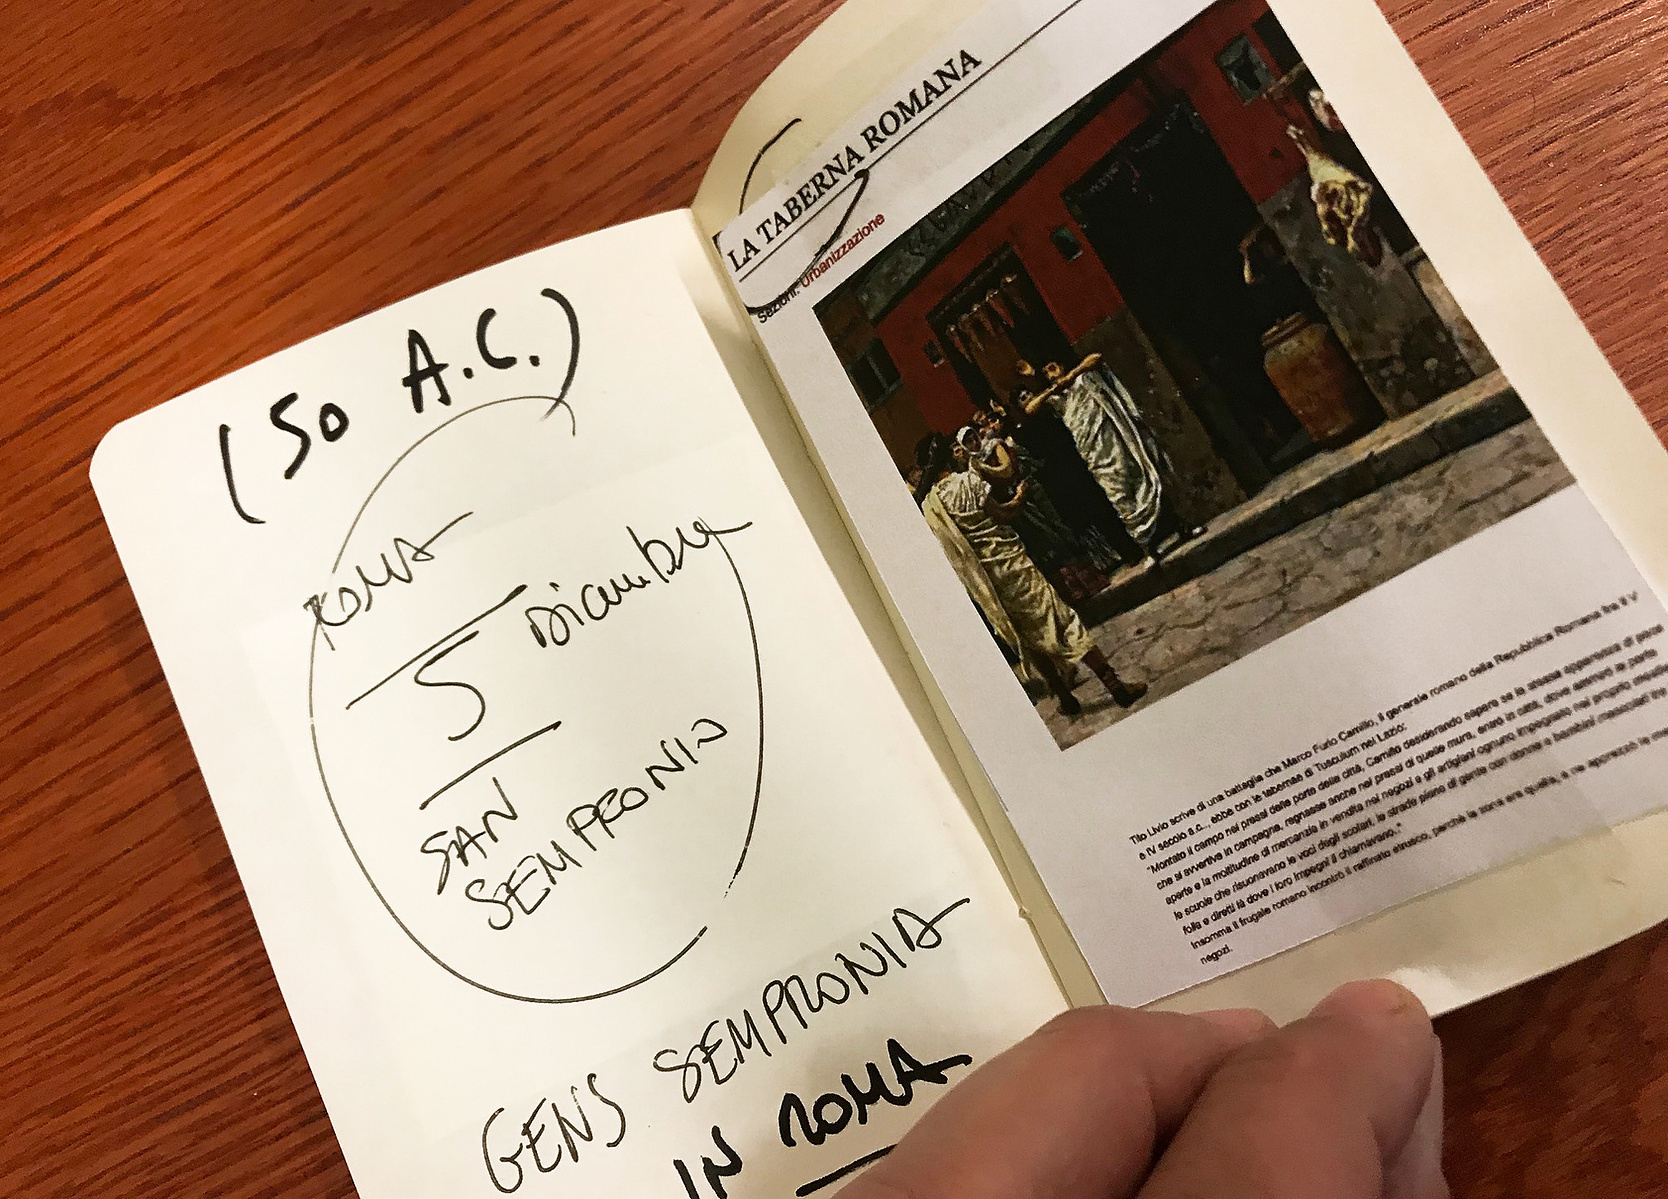 (50 A.C.)
ROMA
5 Dicembre
SAN
SEMPRONIO
GENS SEMPRONIA
IN ROMA
LA TABERNA ROMANA
Sezioni: Urbanizzazione
Tito Livio scrive di una battaglia che Marco Furio Camillo, il generale romano della Repubblica Romana fra il V
e IV secolo a.c., ebbe con le tabernae di Tusculum nel Lazio:
"Montato il campo nei pressi delle porte della città, Camillo desiderando sapere se la stessa apparenza di pace
che si avvertiva in campagna, regnasse anche nei pressi di quelle mura, entrò in città, dove admiro le porte
aperte e la moltitudine di mercanzia in vendita nei negozi e gli artigiani ognuno impegnato nel proprio mestiere
le scuole che risuonavano le voci degli scolari, le strade piene di gente con donne e bambini mescolati tra
folla e diretti là dove i loro impegni li chiamavano."
Insomma il frugale romano incontrò il raffinato etrusco, perchè la zona era quella, e ne apprezzò le
negozi.